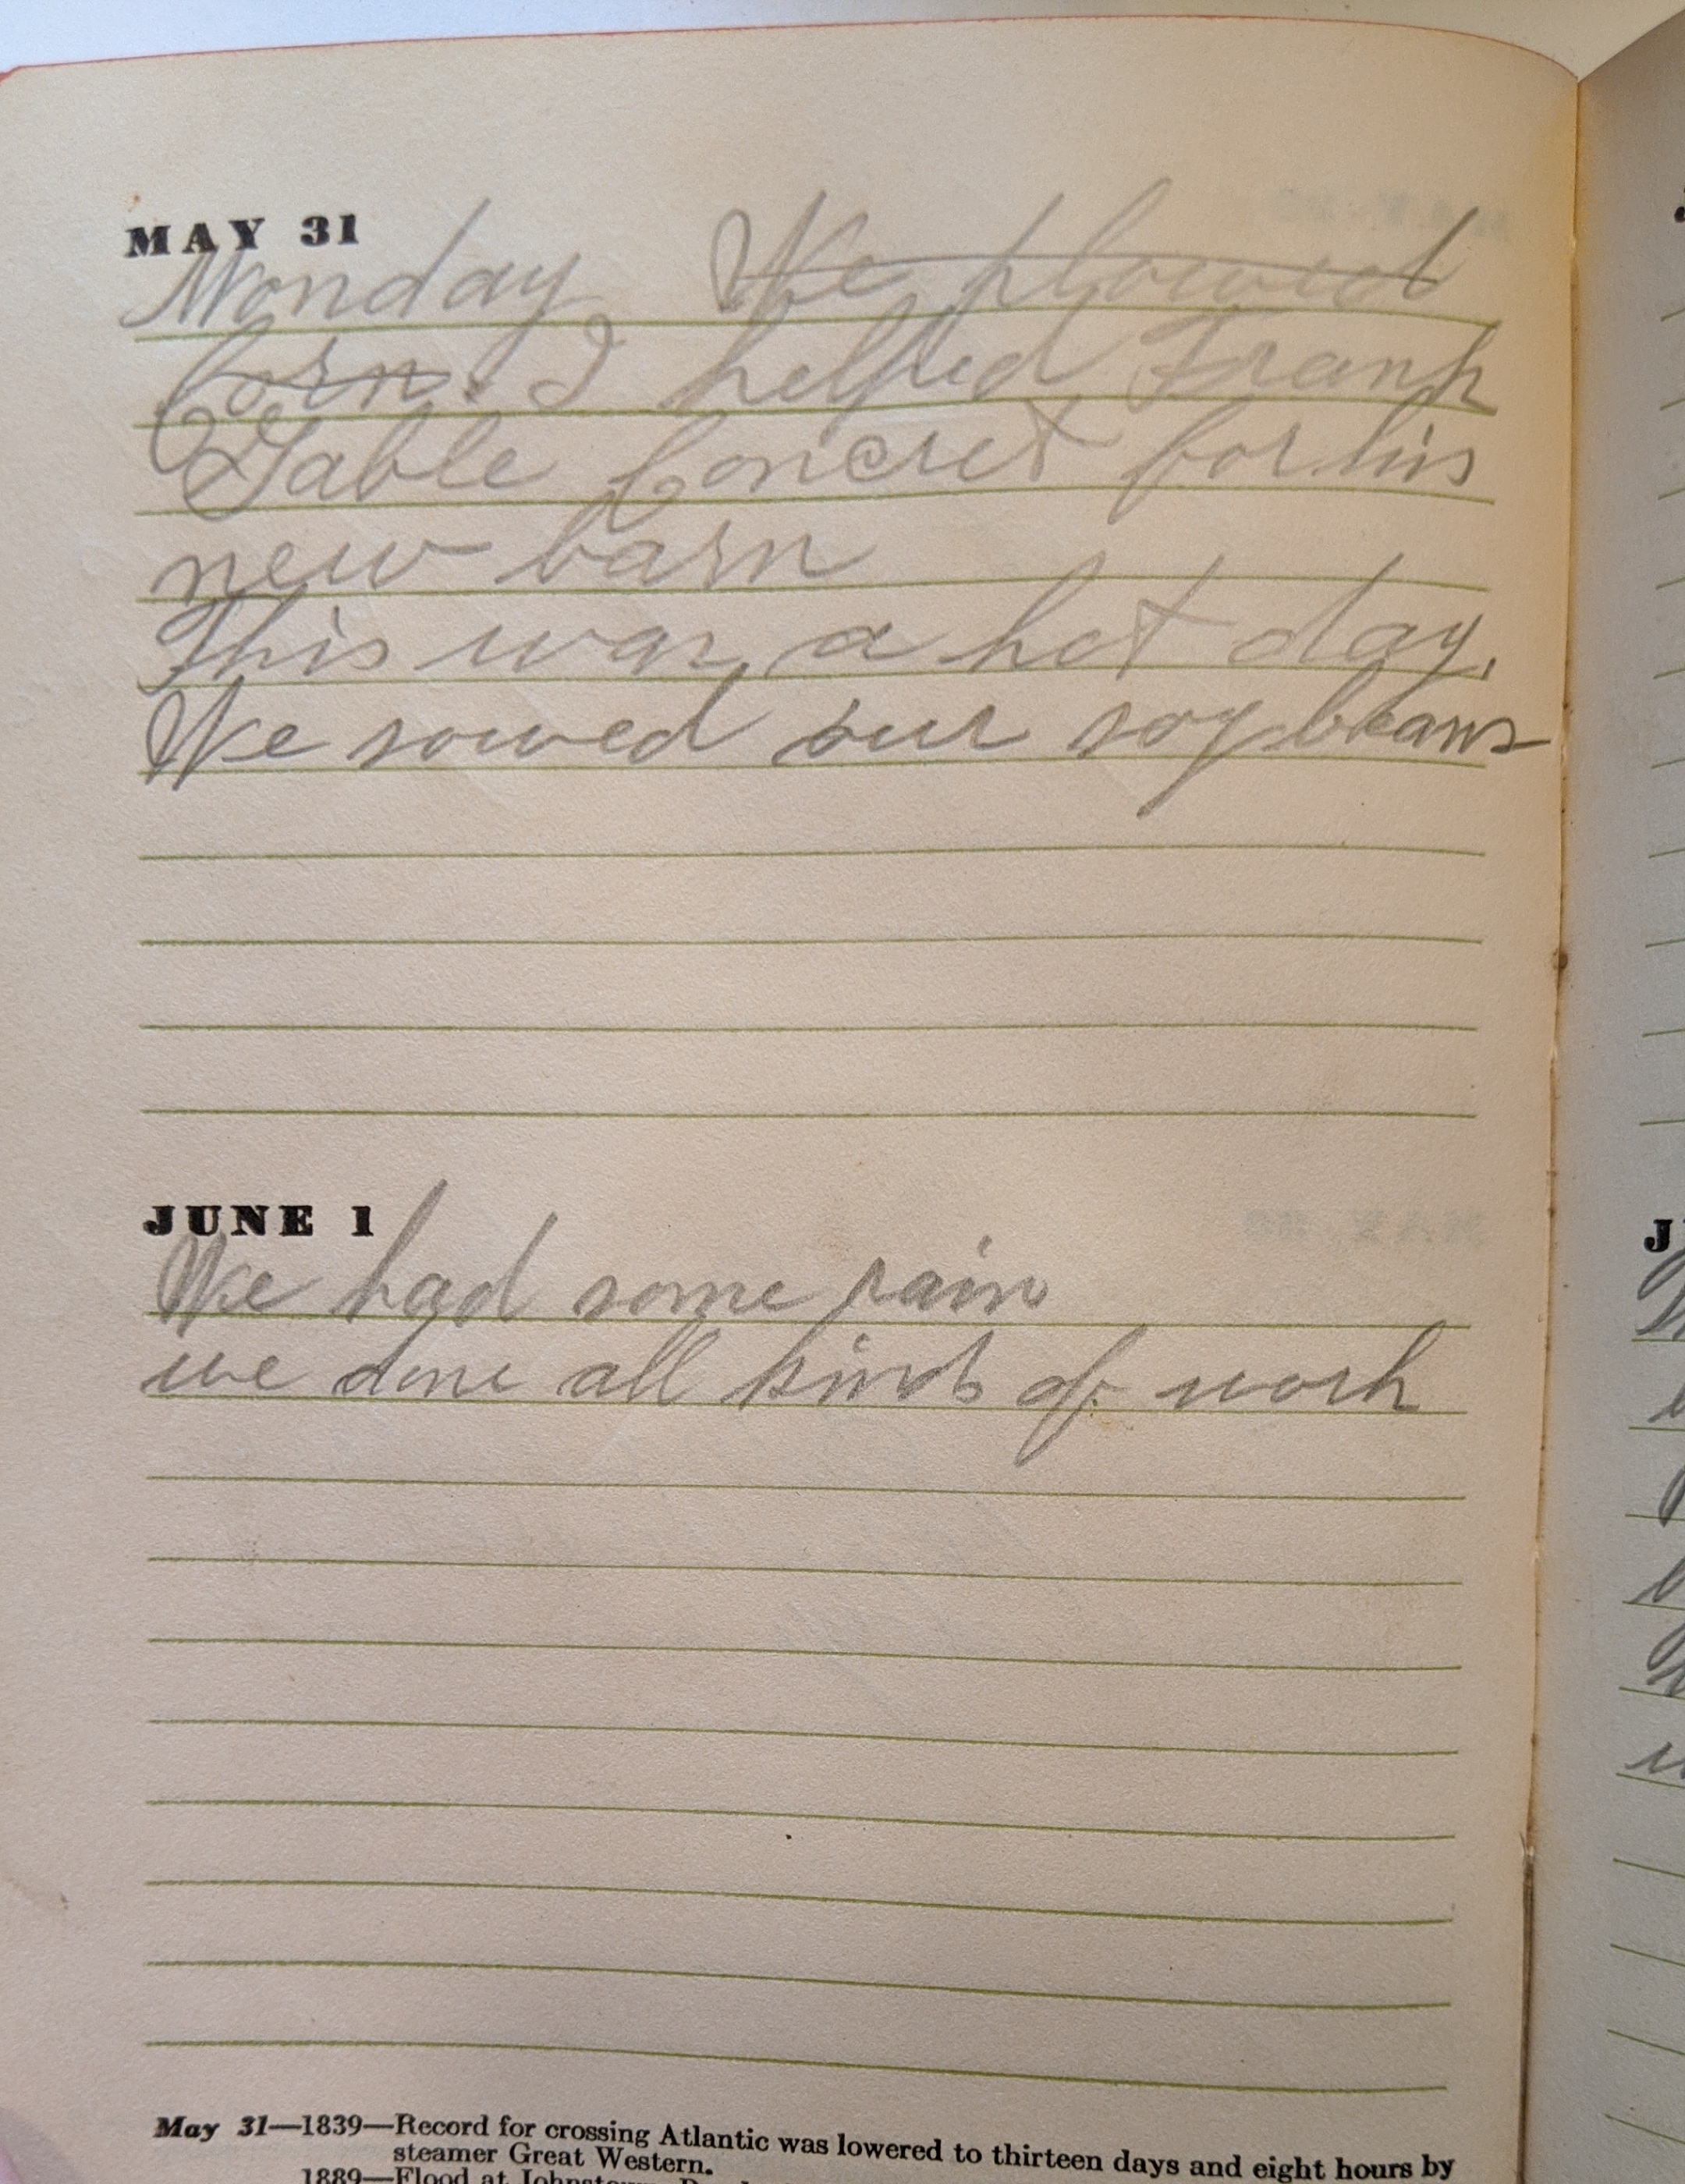 MAY 31
Monday We plowed
Corn. I helped Frank
Gable Concret for his
new barn
This was a hot day.
We sowed our soy beans
JUNE 1
We had some rain
we done all kinds of work
May 31—1839—Record for crossing Atlantic was lowered to thirteen days and eight hours by
steamer Great Western.
1889—Flood at Johnstown,